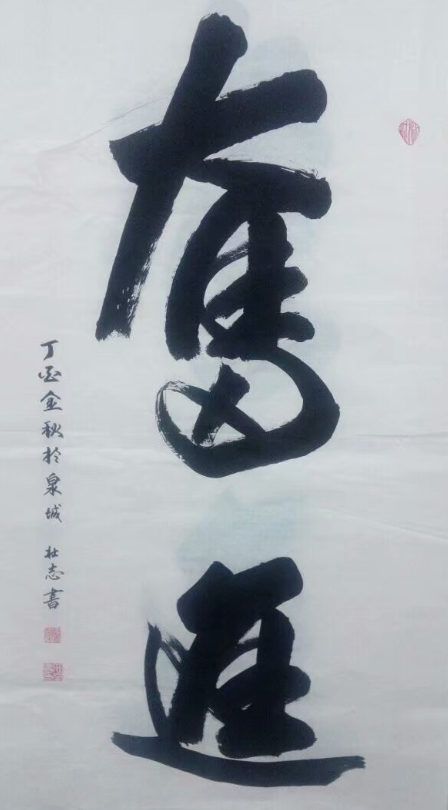 奮進
丁酉金秋於泉城 杜志書